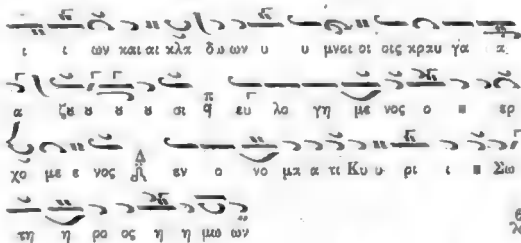 ι ι ων και αι κλα δω ων υ υ μνοι οι οις κραυ γα α
α ζȣ ȣ ȣ ȣ σι π̈ q ευ λο γη με νος ο ο ερ
χο με ε νος Δ εν ο νο μα α τι Κυ υ ρι ι ȣ Σω
τη η ρο ος η η μω ων